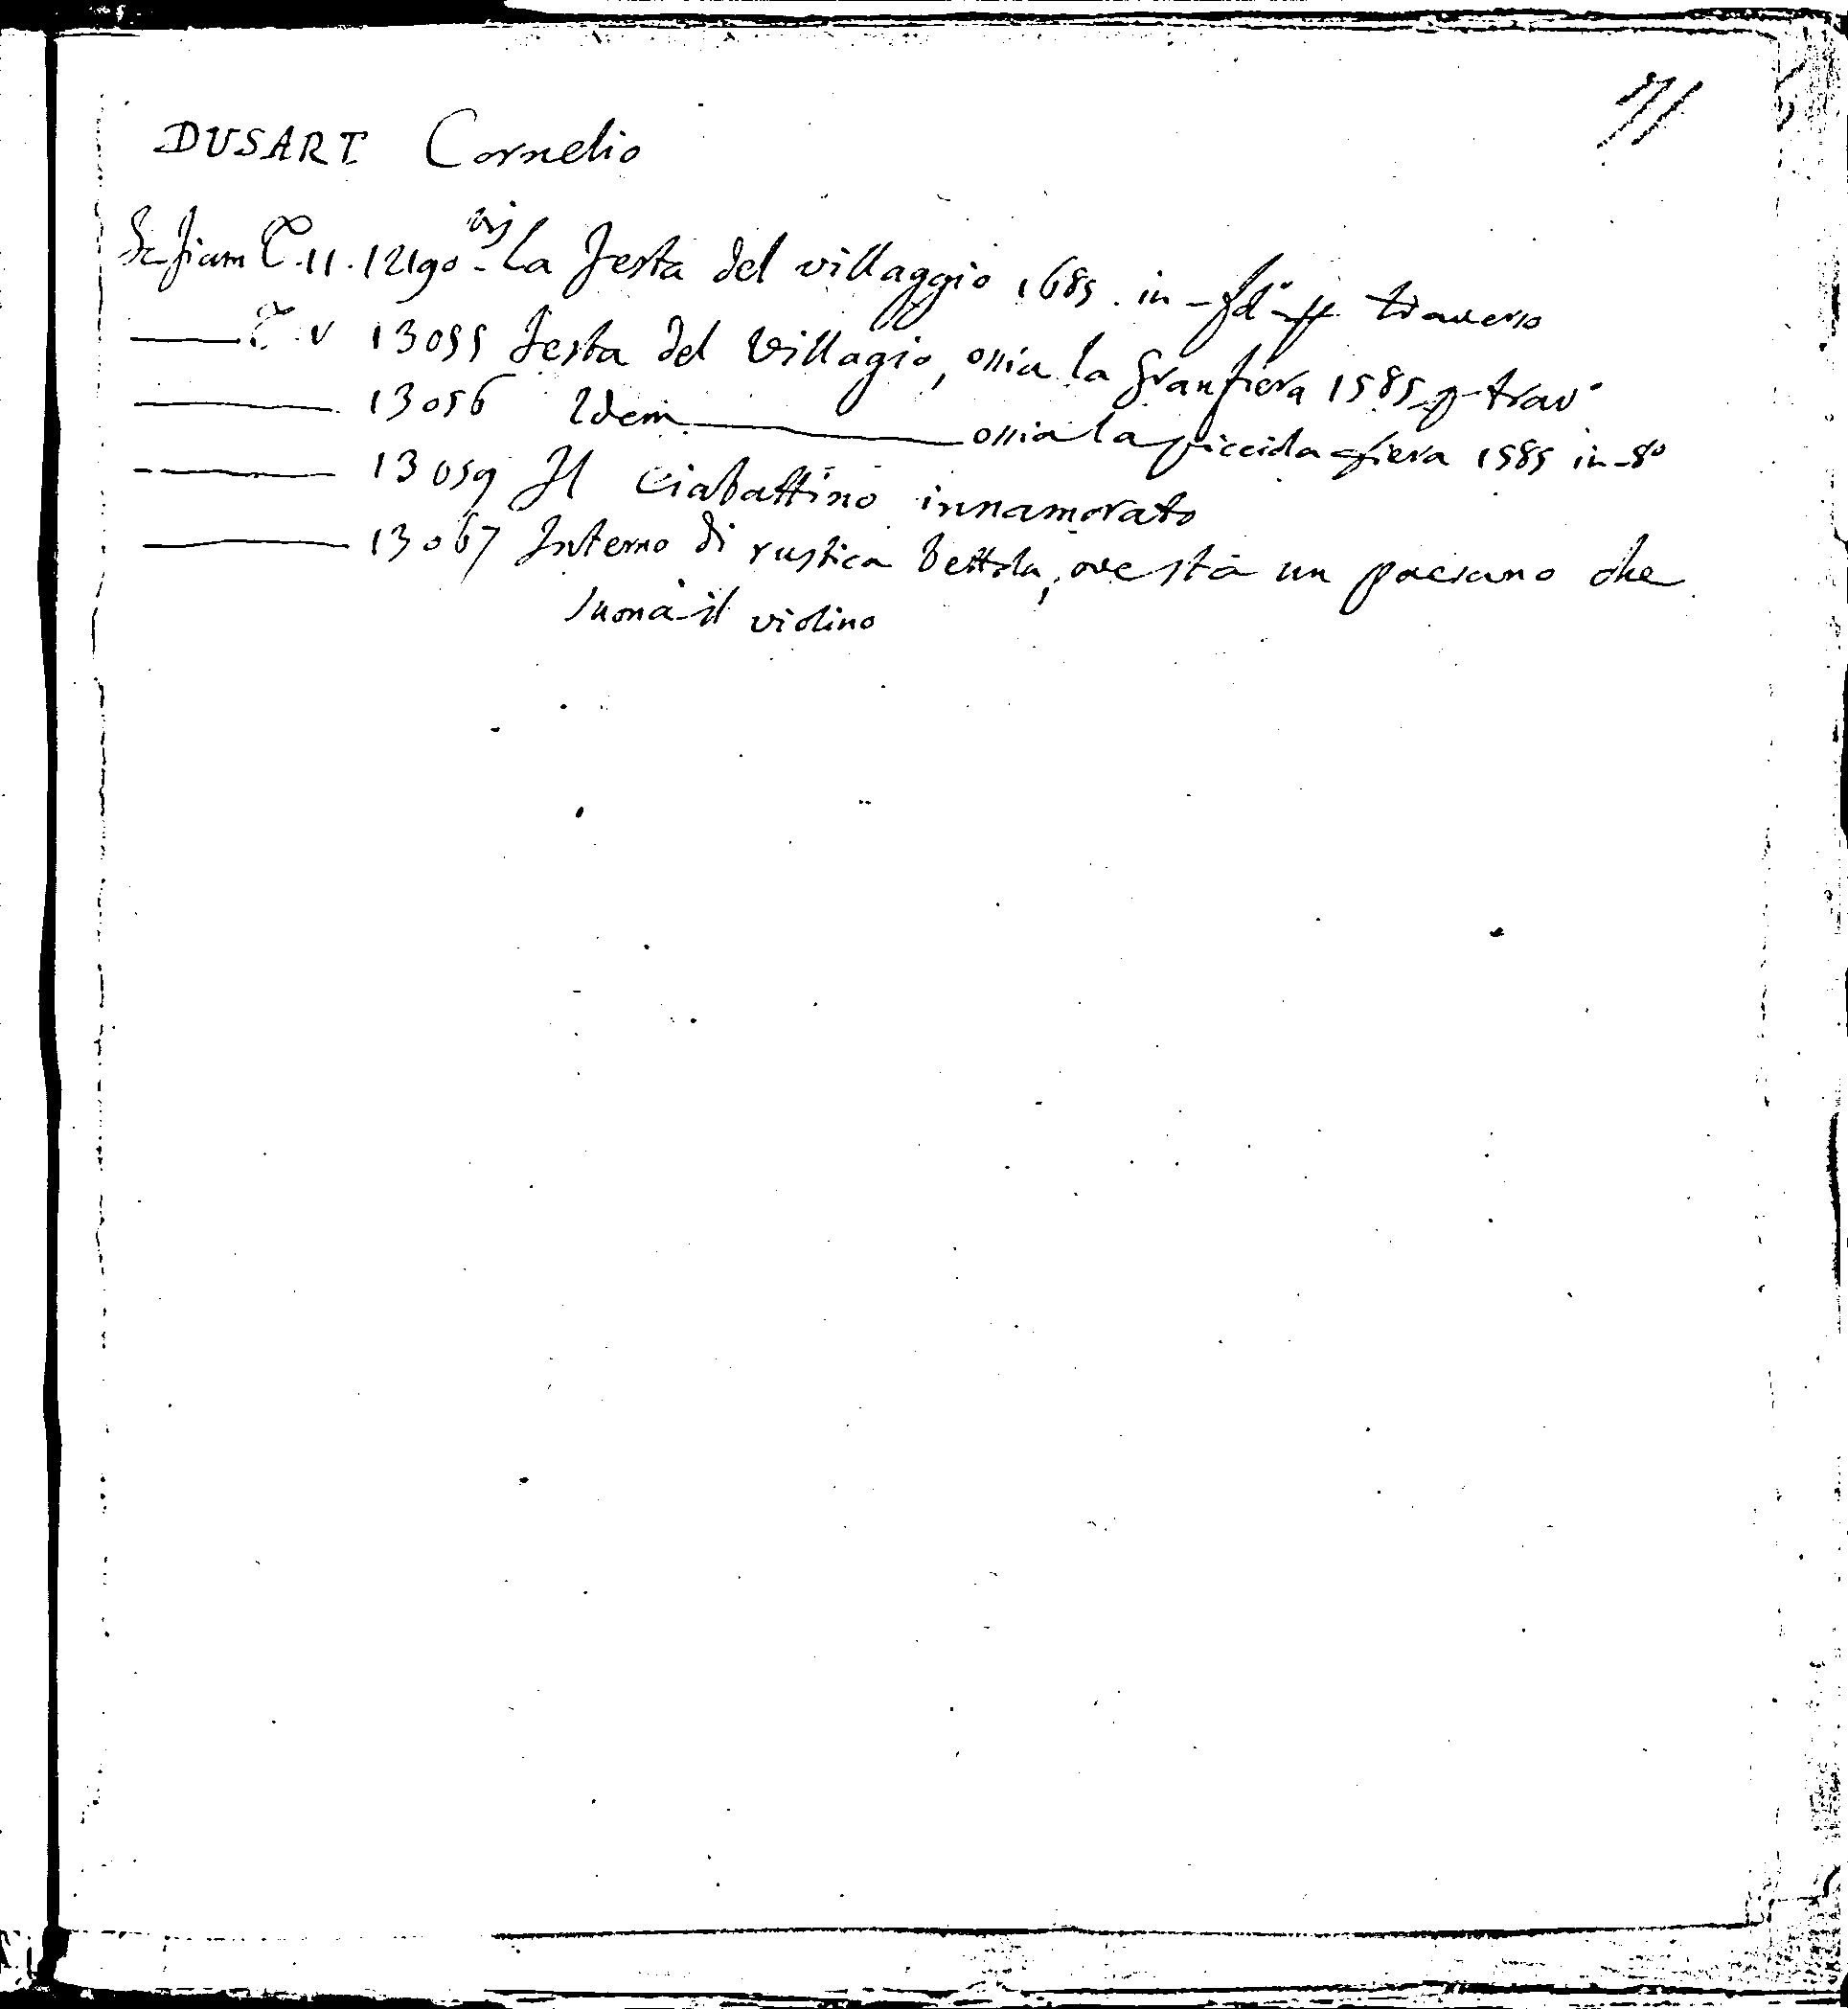 71
DUSART Cornelio
Sc. fiam T. 11. 12190 bis - La Festa del villaggio 1685. in-fol° p traverso
T. V 13055 Festa del Villagio, ossia la Gran fiera 1585 p trav°
13056 Idem ossia la picciola fiera 1585 in-8°
13059 Il Ciabattino innamorato
13067 Interno di rustica bettola, ove sta un paesano che
suona il violino